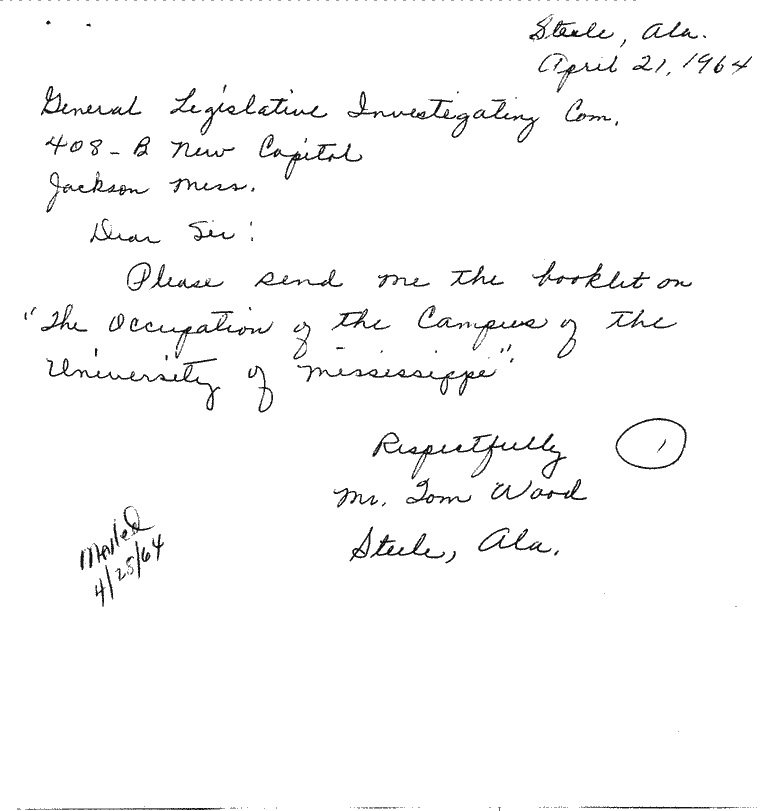 Steele, Ala.
April 21, 1964
General Legislative Investigating Com.
408-B New Capitol
Jackson Miss.
Dear Sir:
Please send me the booklet on
"The Occupation of the Campus of the
University of Mississippi".
Respectfully
1
Mr. Tom Wood
Steele, Ala.
Mailed
4/28/64